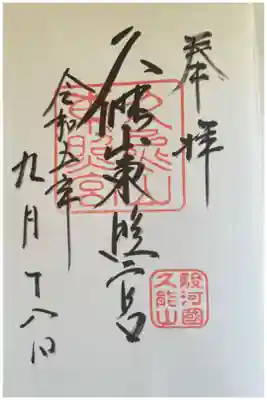 奉拝
久能山東照宮
令和五年
九月十八日
久能山
東照宮
駿河國
久能山